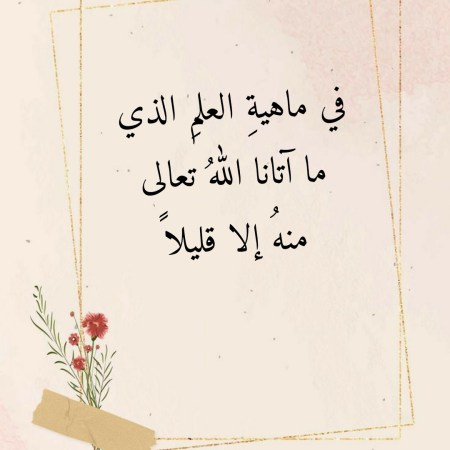 في ماهيةِ العلمِ الذي
ما آتانا اللهُ تعالى
منهُ إلا قليلاً